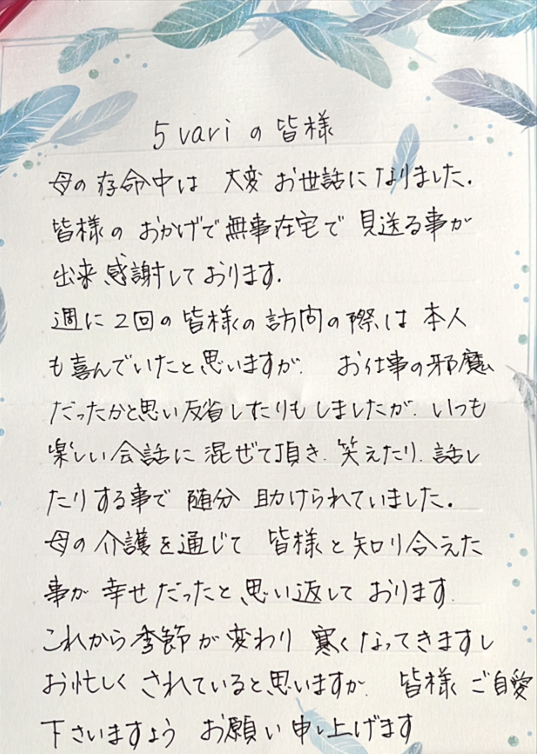 5 vari の 皆様
母の存命中は 大変 お世話になりました.
皆様の おかげで無事在宅で 見送る事が
出来、感謝しております.
週に 2回の 皆様の訪問の際、は 本人
も喜んでいたと思いますが、 お仕事の邪魔
だったかと思い反省したりもしましたが、いつも
楽しい会話に 混ぜて頂き、笑えたり、話し
たりする事で 随分 助けられていました.
母の介護を通じて 皆様と知り合えた
事が 幸せだったと、思い返して おります.
これから季節が変わり 寒くなってきますし
お忙しく されていると思いますが、 皆様 ご自愛
下さいますよう お願い申し上げます